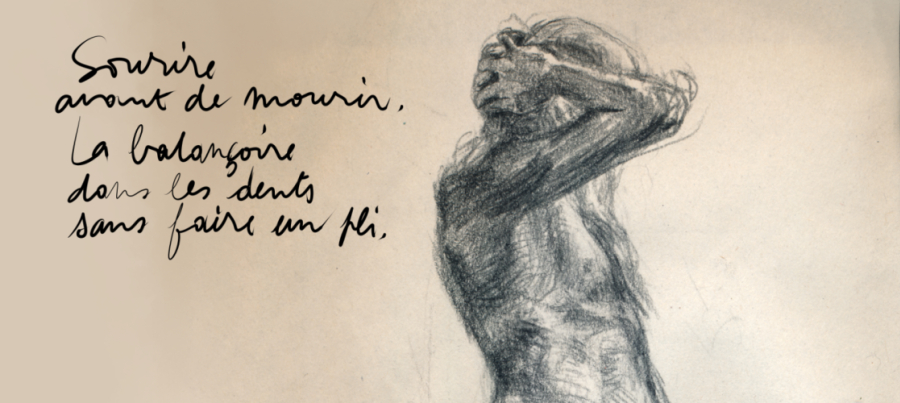 Sourire
avant de mourir.
La balançoire
dans les dents
sans faire un pli.